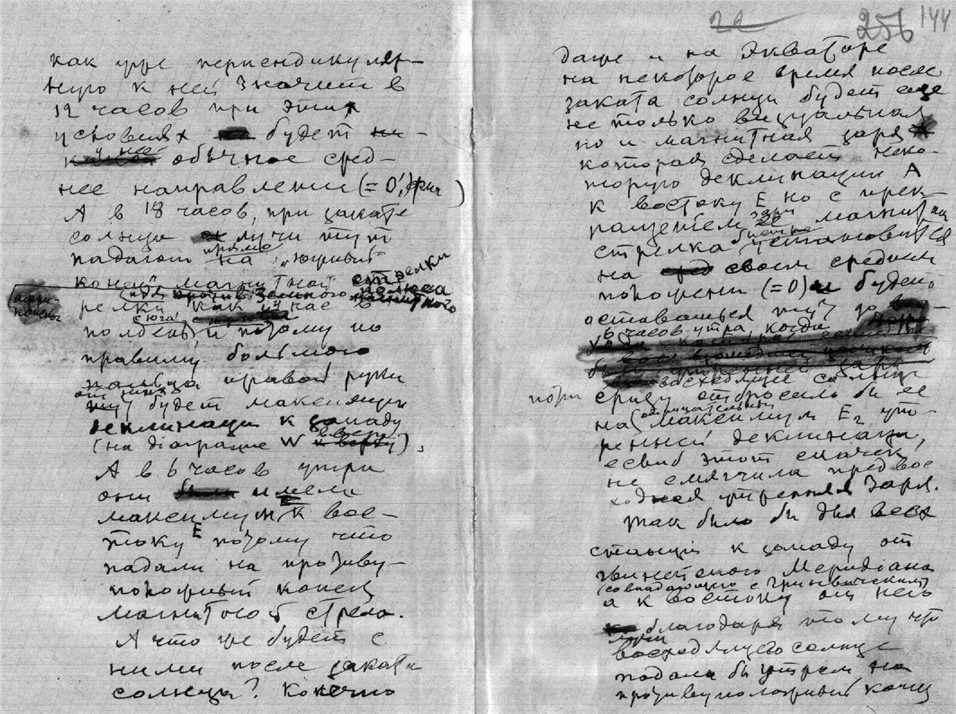 256 144
как уже перпендикуляр-
ную к ней значит в
12 часов при этих
условиях будет
у нея обычное сред-
нее направлении (= 0;)
А в 18 часов, при закате
солнца лучи тут
падают прямо на "южный
конец магнитной стрелки
как у нас в
полдень и поэтому по
правилу большого
пальца правой руки
от них будет максимум
деклинации к западу
(на діаграме W вверх).
А в 6 часов утра
они имели
максимум к вос-
току E потому что
падали на противу-
положный конец
магнитной стрелы.
А что же будет с
ними после заката
солнца? Конечно
даже и на Экваторе
на некоторое время после
заката солнца будет еще
не только визуальная
но и магнитная заря
которая сделает неко-
торую деклинации А
к востоку E но с прек-
ращением зари магнитная
стрелка быстро установится
на своем среднем
положени (= 0) и будет
оставаться тут до
6 часов утра, когда
восходящее солнце
сразу отбросило бы ее
на максимум E₂ утре-
нней деклинации,
если б этот скачек
не смягчила предвос-
ходная утренняя Заря.
Так было бы для всех
станций к западу от
гринвичского Меридиана
(совпадающего с Гринвическим)
а к востоку от него
благодаря тому что
лучи
восходящего солнца
падали бы утром на
противуположный конец